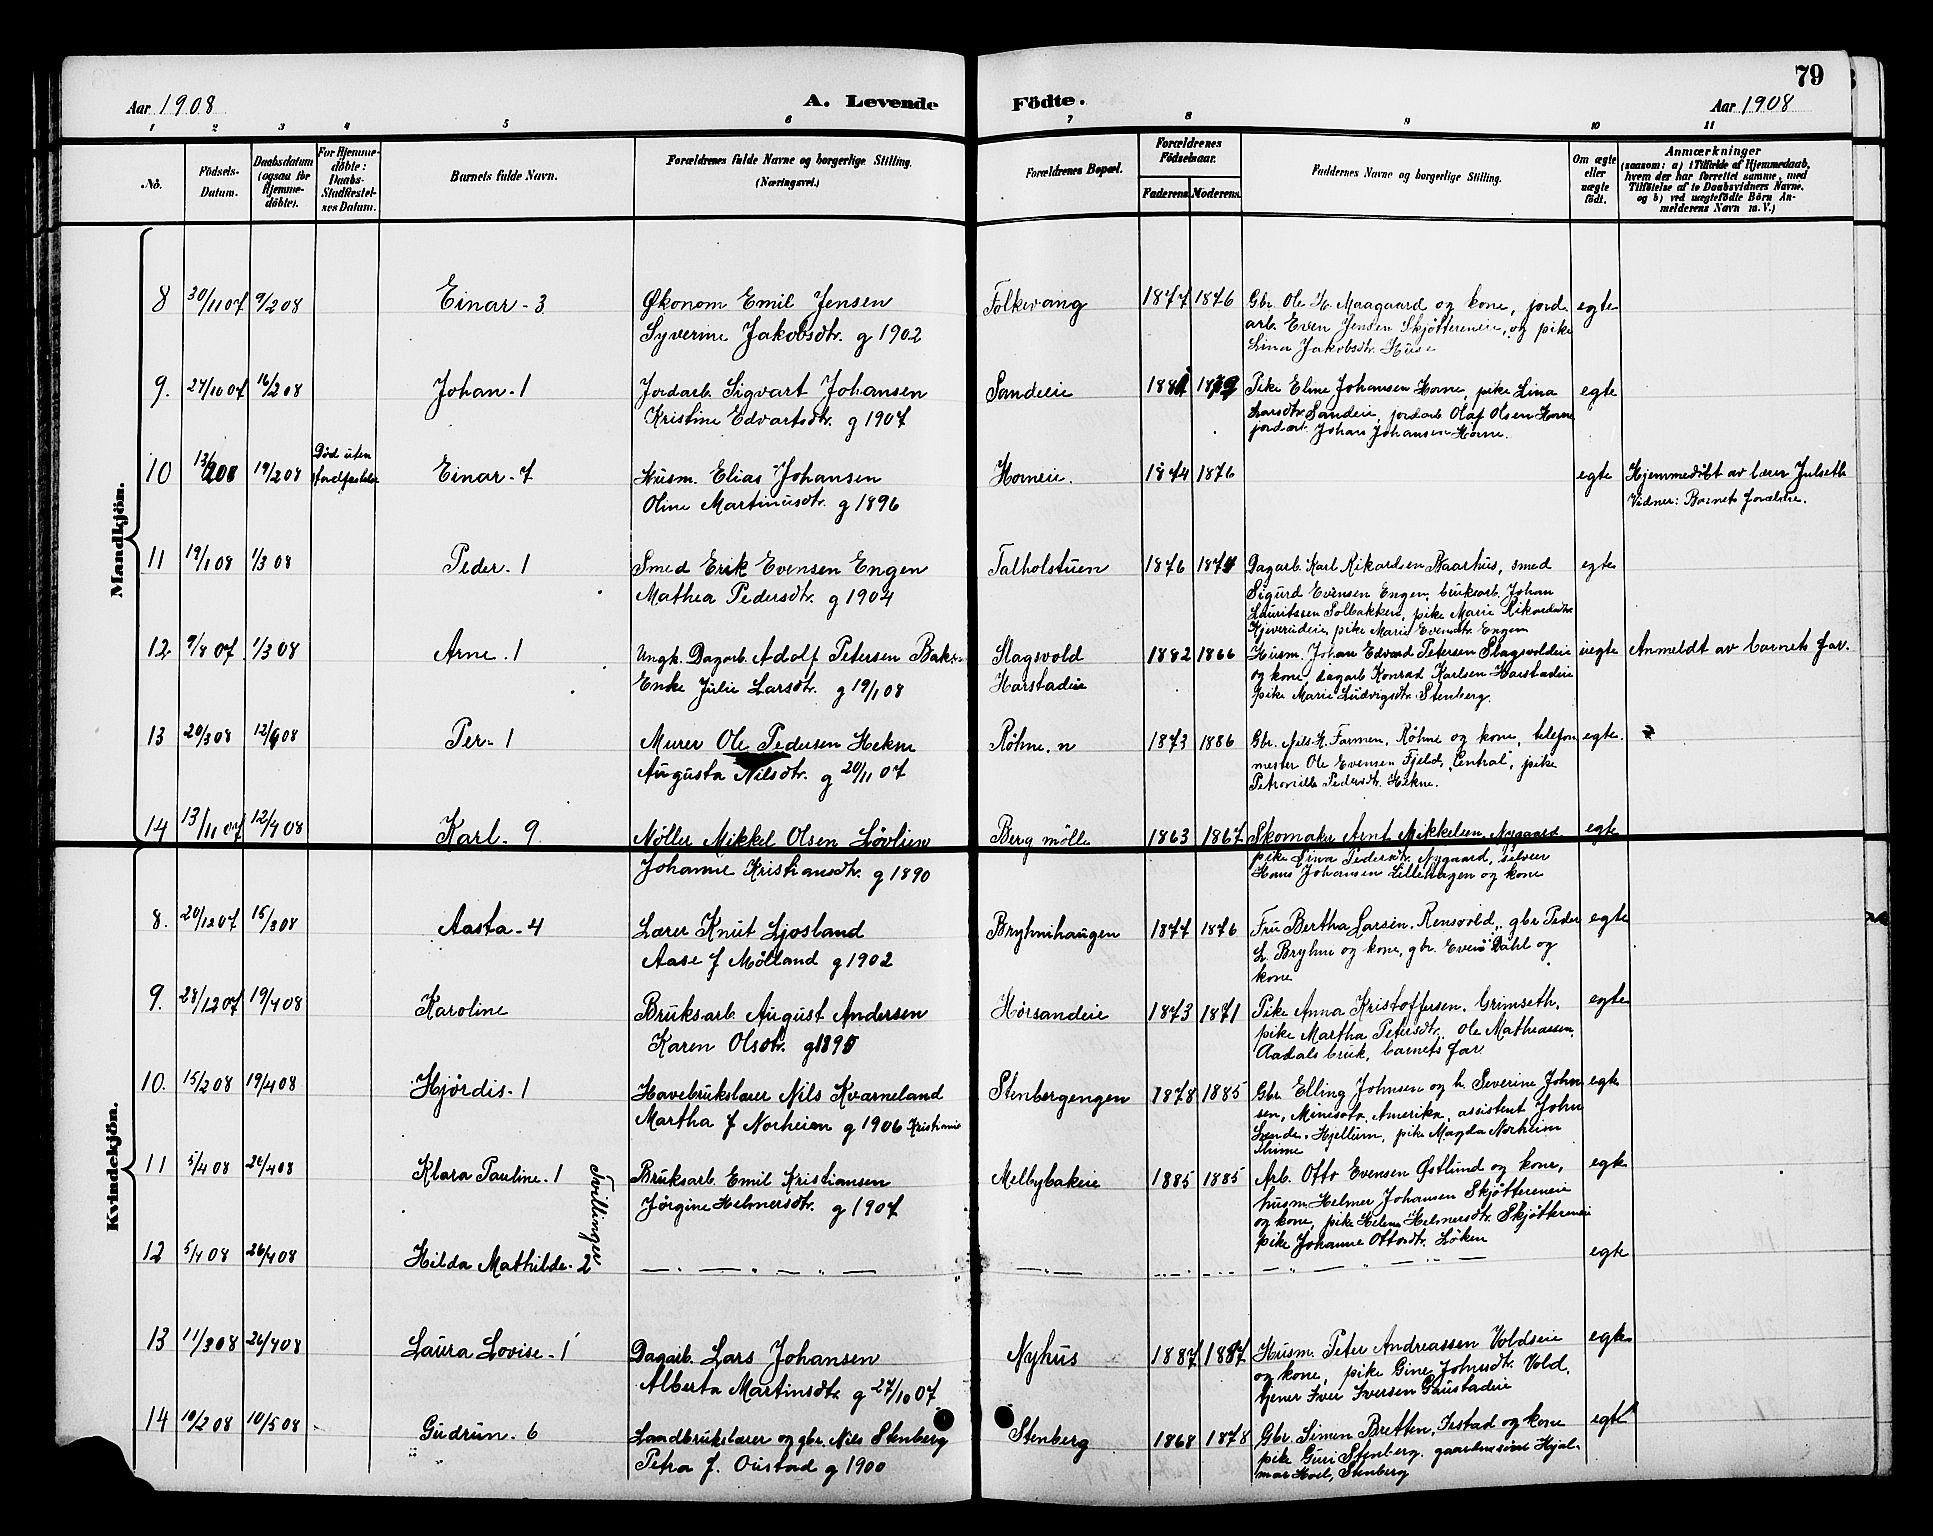 79
Aar 1908 A. Levende Födte. Aar 1908
1 2 3 4 5 6 7 8 9 10 11
No.
Födsels-Datum.
Daabsdatum (ogsaa for Hjemme-döbte).
For Hjemme-döbte: Daabs-Stadfæstel-ses Datum.
Barnets fulde Navn.
Forældrenes fulde Navne og borgerlige Stilling.
(Næringsvei.)
Forældrenes Bopæl.
Forældrenes Födselsaar.
Faderens. Moderens.
Faddernes Navne og borgerlige Stilling.
Om ægte eller uægte födt.
Anmærkninger
(saasom: a) i Tilfælde af Hjemmedaab,
hvem der har forrettet samme, med
Tilföielse af to Daabsvidners Navne,
og b) ved uægtefödte Börn An-
melderens Navn m. V.)
Mandkjön.
8 30/11 07 9/2 08 Einar - 3 Økonom Emil Jensen Folkevang 1877 1876 Gbr. Ole H. Maagaard og kone, jord. egte
Syverine Jakobsdtr. g 1902 arb. Even Jensen Skjøttereneie, og pike
Lina Jakobsdtr. Huse
9. 27/10 07 16/2 08 Johan - 1 Jordarb. Sigvart Johansen Sandeie Pike Eline Johansen Horne, pike Lina egte
Kristine Edvartsdtr. g 1907 Larsdtr. Sandeie, jordarb. Olaf Olsen Horne
jordarb. Johan Johansen Horne.
10 19/2 08 Død uten Einar - 7 Husm. Elias Johansen Horneie. 1874 1876 egte Hjemmedøbt av lærer Julseth
Oline Martinusdtr. g 1896 Vidner: Barnets forældre.
11 19/1 08 1/3 08 Peder - 1 Smed Erik Evensen Engen Talholstuen 1876 Dagarb. Karl Rikardsen Aaarhus, smed egte
Mathea Pedersdtr. g 1904 Sigurd Evensen Engen, bruksarb. Johan
Lauritssen Solbakken, pike Marie Rikardsdtr.
pike Marie Evensdtr. Engen
12 9/8 07 1/3 08 Arne - 1 Ungk. Dagarb. Adolf Petersen Slagsvold 1882 1866 Husm. Johan Edvard Petersen Slagsvoldeie uegte Anmeldt av barnets far.
Enke Julie Larsdtr. g 19/1 08 Harstadeie og kone, dagarb Konrad Karlsen Harstadeie
pike Marie Ludvigsdtr. Stenberg.
13 20/3 08 Per - 1 Murer Ole Pedersen Hekne Røhne. n 1873 1886 Gbr. Nils K. Farmen, Røhne og kone, telefon egte.
Augusta Nilsdtr. g 20/11 07 mester Ole Evensen Fjeld, "Central", pike
Petronille Pedersdtr. Hekne.
14 13/11 07 12/4 08 Karl - 9 Møller Mikkel Olsen Løvlien Berg mølle 1863 1867 Skomaker Arnt Mikkelsen Nygaard egte
Johanne Kristiansdtr. g 1890 pike Lina Pedersdtr. Nygaard, selveier
Hans Johansen Lillehagen og kone
Kvindekjön.
8. 20/12 07 15/3 08 Aasta - 4 Lærer Knut Ljosland Bryhnihaugen 1877 1876 Fru Bertha Larsen, Rensvold, gbr. Peder egte
Aase f Mølland g 1902 L. Bryhni og kone, gbr. Even Dahl og
kone
9. 28/12 07 19/4 08 Karoline Bruksarb. August Andersen Hørsandeie 1873 1871 Pike Anna Kristoffersen, Grimseth, egte
Karen Olsdtr. g 1895 pike Martha Petersdtr, Ole Mathiassen
Aadals bruk, barnets far
10. 15/2 08 19/4 08 Hjørdis - 1 Havebrukslærer Nils Kvarneland Stenbergengen 1878 1885 Gbr. Elling Johnsen og h. Severine John egte
Martha f Norheim g 1906 Kristiania sen, Minesota, Amerika, assistent John
Lende, Hjellum, pike Magda Norheim
11 5/4 08 26/4 08 Klara Pauline - 1 Tvillinger Bruksarb. Emil Kristiansen Melbybakeie 1885 1885 Arb. Otto Evensen Østlund og kone, egte
Jørgine Helmersdtr. g 1907 husm. Helmer Johansen Skjøttereneie
og kone, pike Helene Helmersdtr. Skjøttereneie
pike Johanne Ottosdtr. Løken
12 5/4 08 26/4 08 Hilda Mathilde - 2 — " — " — egte
13 11/3 08 26/4 08 Laura Lovise - 1 Dagarb. Lars Johansen Nyhus 1887 1887 Husm. Peter Andreassen Voldseie egte
Alberta Martinsdtr. g 27/10 07 og kone, pike Gine Johnsdtr. Vold,
tjener Iver Iversen Gaustadeie
14 10/2 08 10/5 08 Gudrun - 6 Landbrukslærer og gbr. Nils Stenberg Stenberg 1868 1878 Gbr. Simen Bretten, Istad og kone egte
Petra f. Oustad g 1900 pike Guri Stenberg, gaardmssøn Hjal-
mar Hoel, Stenberg